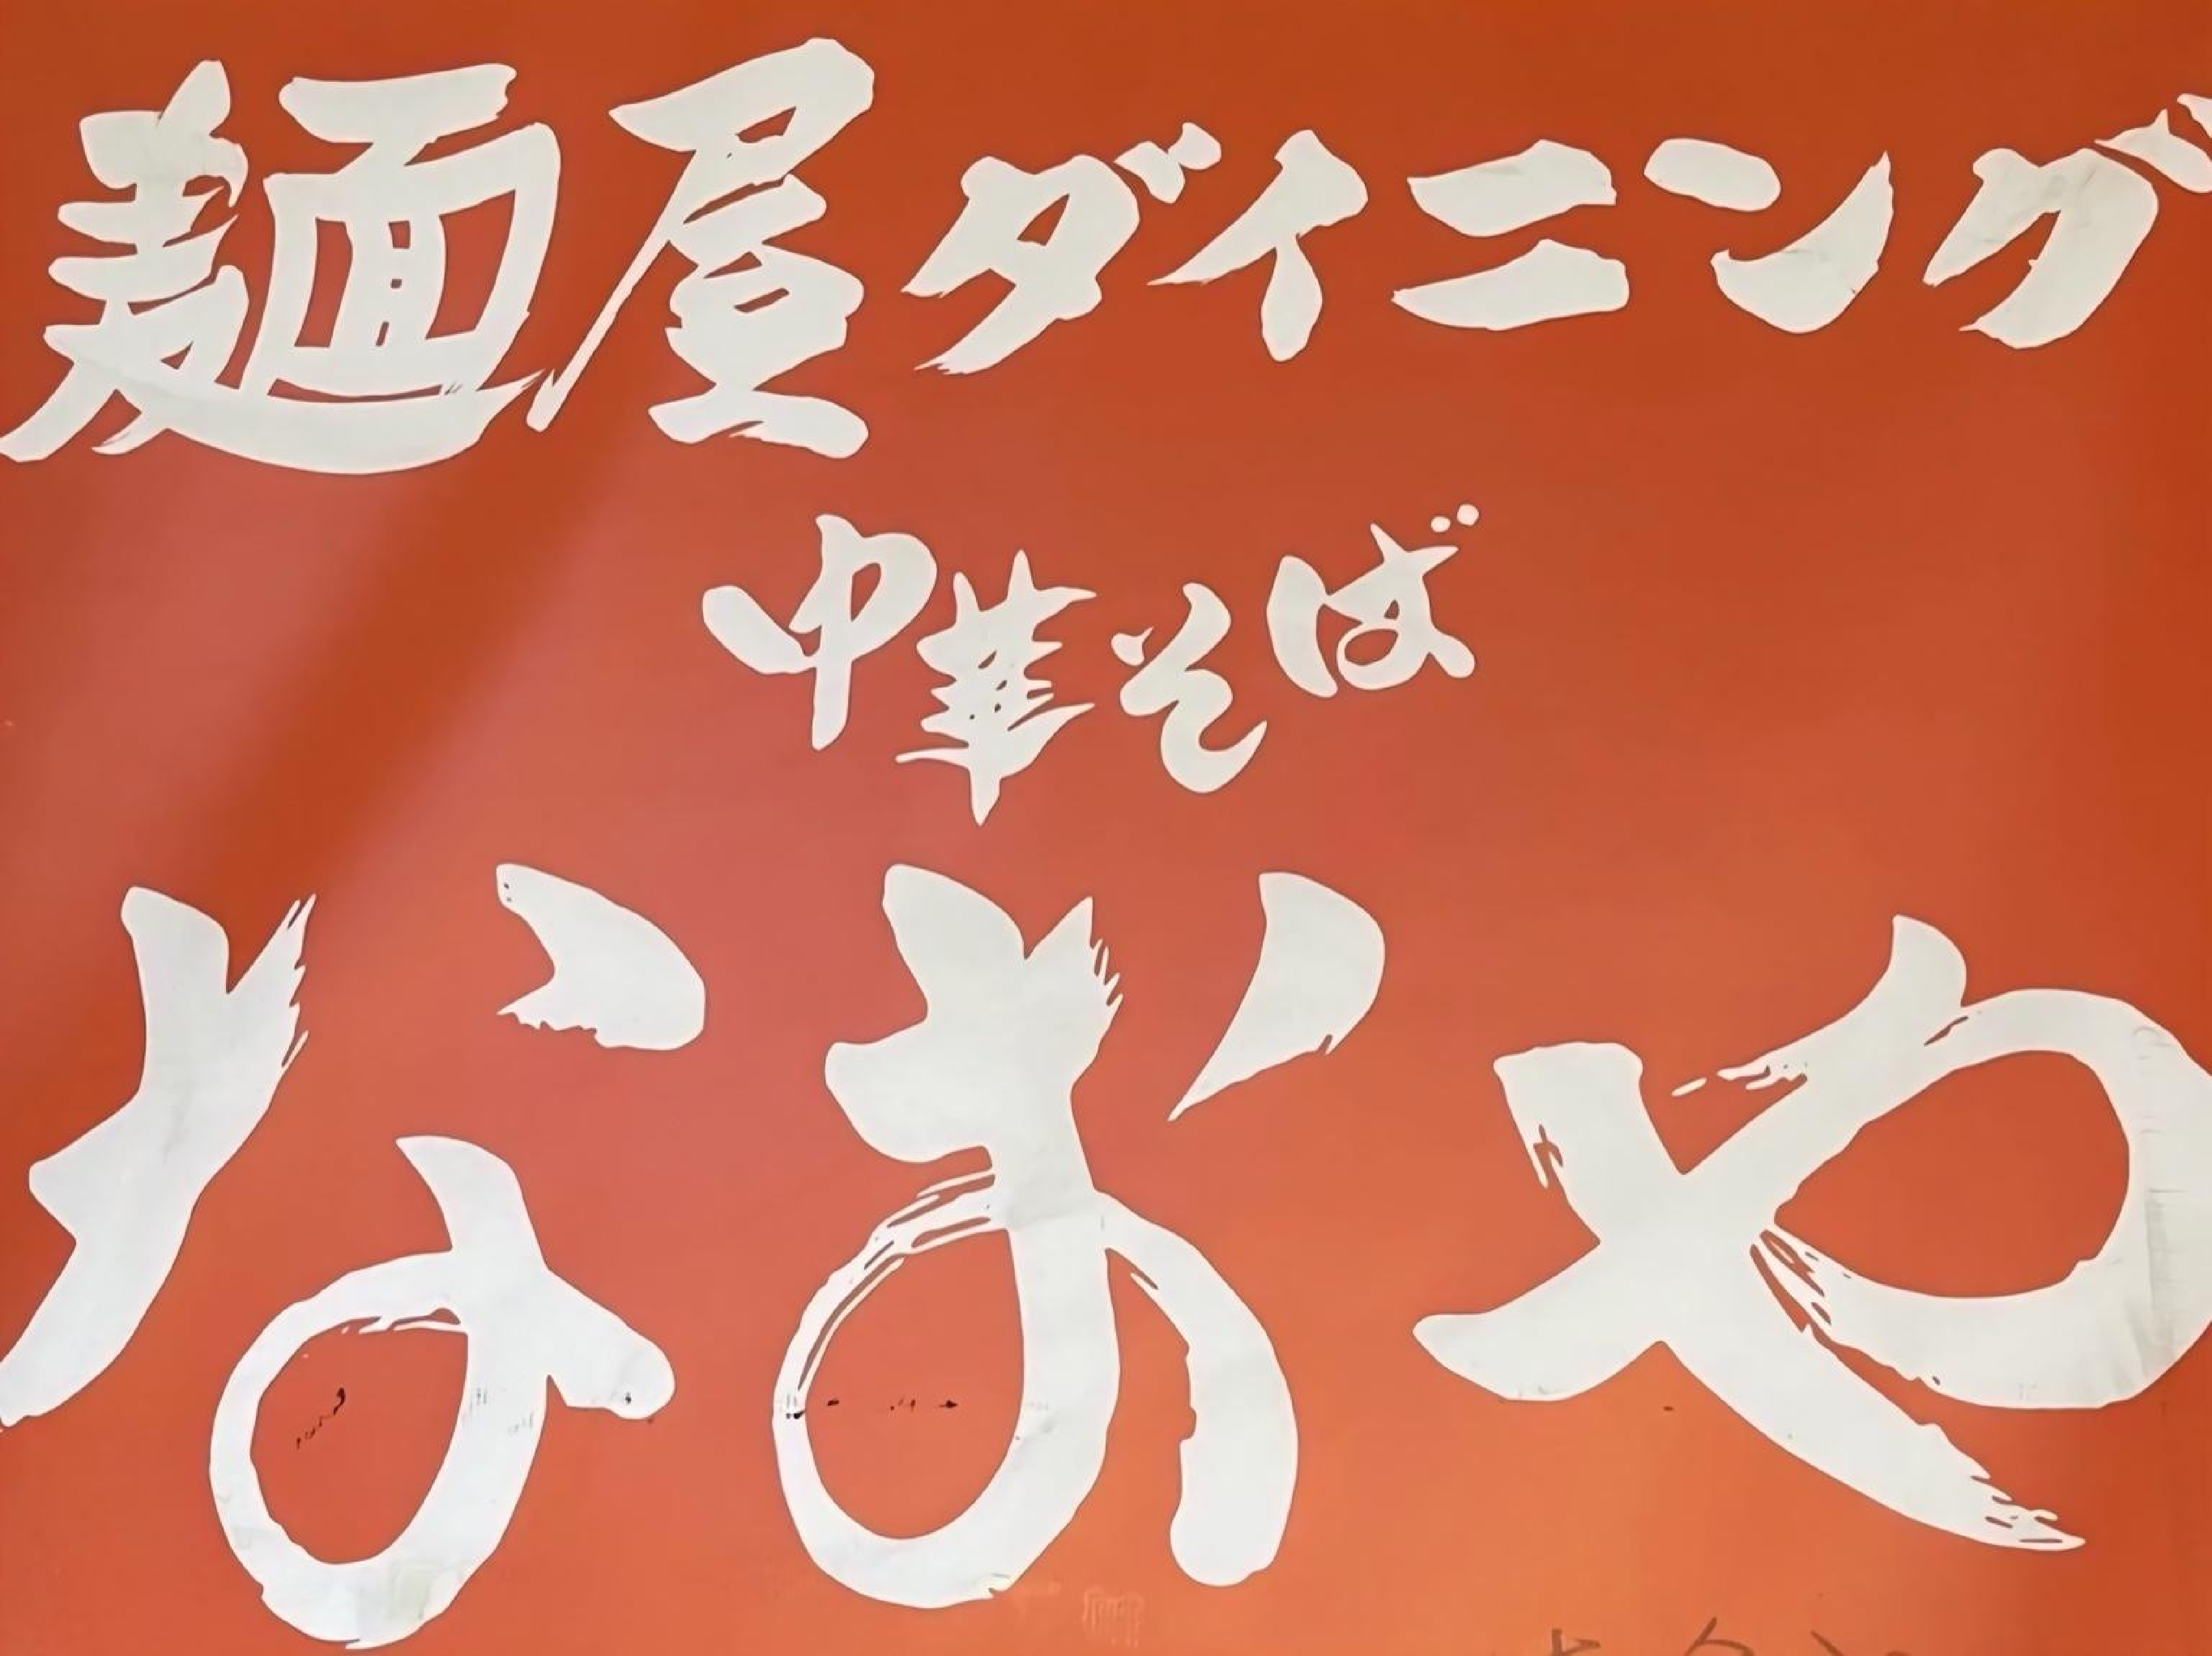 麺屋ダイニング
中華そば
なおや